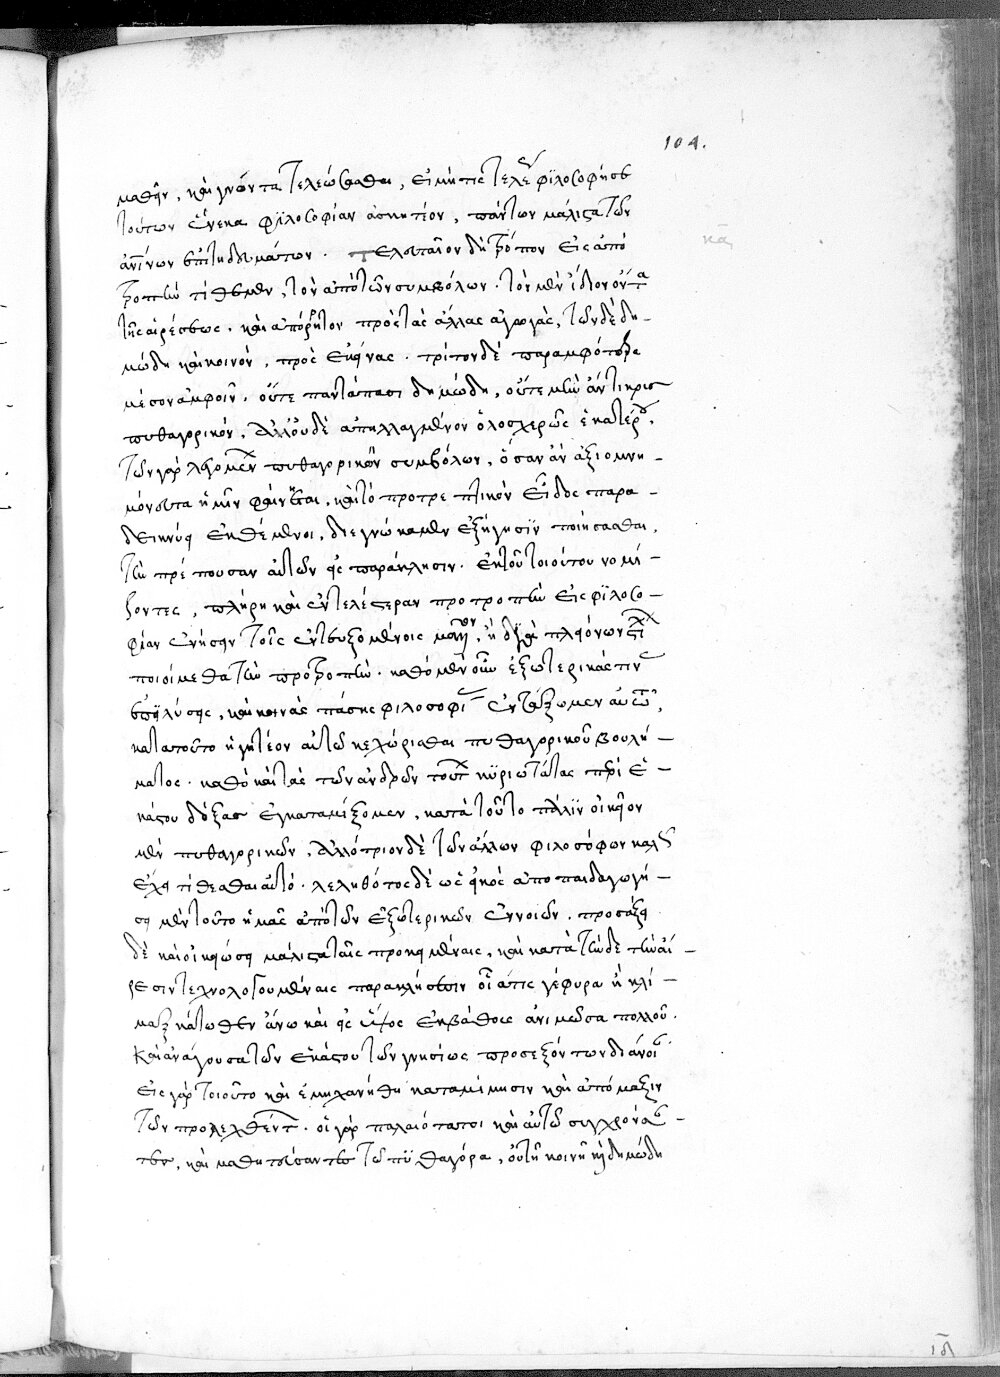 104.
μαθεῖν, καὶ γνόντα τελεώσασθαι, εἰ μή τις τελέως φϊλοσοφήσει
τούτων ἕνεκα φϊλοσοφίαν ἀσκητέον, πάντων μάλιστα τῶν
ἀνθρωπίνων ἐπιτηδευμάτων. τελευταῖον δὴ τρόπον εἰς ἀπό
τροπὴν τίθεμεν, τὸν ἀπὸ τῶν συμβόλων. τὸν μὲν ἴδιον ὄντα
τῆς αἱρέσεως. καὶ ἀπόρρητον πρὸς τὰς ἄλλας ἀγωγάς, τὸν δὲ δη-
μώδη καὶ κοινὸν, πρὸς ἐκείνας. τρίτον δὲ παραμφότερα
μέσον ἀμφοῖν. οὔτε παντάπασι δημώδη, οὔτε μὴν ἄντικρις
πυθαγορικὸν, ἀλλ' οὐδὲ ἀπηλλαγμένον ὁλοσχερῶς ἑκατέρου,
τῶν γὰρ λεγομένων πυθαγορικῶν συμβόλων, ὅσα ἂν ἀξιομνη-
μόνευτα ἡμῖν φαίνηται, καὶ τὸ προτρεπτικὸν εἶδος παρα-
δείκνυσι ἐκθέμενοι, διεγνώκαμεν ἐξήγησϊν ποιήσασθαι,
τὴν πρέπουσαν αὐτῶν εἰς παράκλησιν. ἐκ τοῦ τοιούτου νομί-
ζοντες, πλήρη καὶ ἐντελέστεραν προτροπὴν εἰς φϊλοσο-
φίαν ἐνήσειν τοῖς ἐντευξομένοις μᾶλλον, ἢ διὰ πλειόνων εἰ
ποιοίμεθα τὴν προτροπήν. καθὸ μὲν οὖν ἐξωτερικάς τινας
ἐπηλύσεις, καὶ κοινὰς πάσης φιλοσοφίας ἐντάξωμεν αὐτῷ,
κατὰ τοῦτο ἡγητέον αὐτῶν κεχωρίσθαι πυθαγορικοῦ βουλή-
ματος. καθὸ καὶ τὰς τῶν ἀνδρῶν τούτων κϋριωτάτας περὶ ἑ-
κάστου δόξας ἐγκαταμίξομεν, κατὰ τοῦτο πάλϊν οἰκεῖον
μὲν πυθαγορικῶν, ἀλλότριον δὲ τῶν ἄλλων φιλοσόφων καλῶς
ἔχει τίθεσθαι αὐτό. λεληθότος δὲ ὡς εἰκὸς ἀποπαιδαγωγή-
σει μὲν τοῦτο ἡμᾶς ἀπὸ τῶν ἐξωτερικῶν ἐννοιῶν. προσάξει
δὲ καὶ οἰκειώσει μάλιστα ταῖς προκειμέναις, καὶ κατὰ τήνδε τὴν αἵ-
ρεσιν τεχνολογουμέναις παρακλήσεσιν οἷά τις γέφυρα ἢ κλί-
μαξ κάτωθεν ἄνω καὶ εἰς ὕψος ἐκ βάθους ἀνιμῶσα πολλοῦ.
καὶ ἀνάγουσα τῶν ἑκάστου τῶν γνησίως προσεξόντων διάνοιαν
εἰς γὰρ τοιοῦτο καὶ ἐμηχανήθη κατὰ μίμησιν καὶ ἀπόμαξιν
τῶν προλεχθέντων. οἱ γὰρ παλαιότατοι καὶ αὐτῷ συγχρονίσαν-
τες, καὶ μαθητεύσαντες τῷ πϋθαγόρᾳ, οὐ τῇ κοινῇ καὶ δημώδη